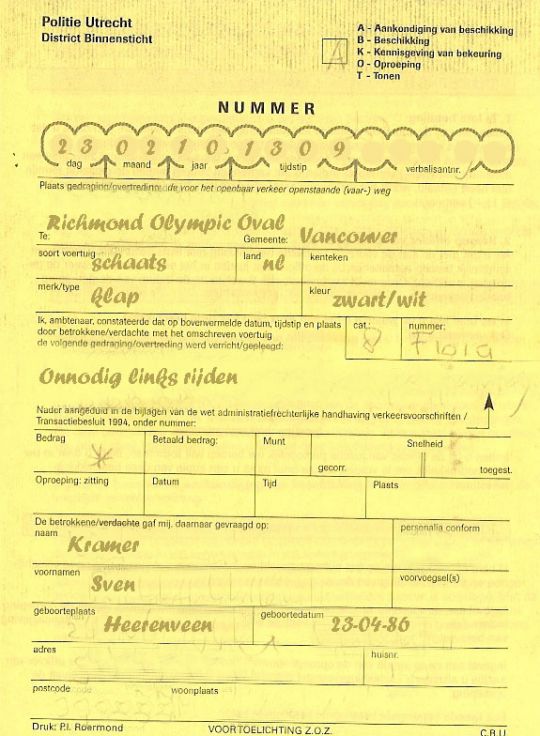 Politie Utrecht
District Binnensticht
A - Aankondiging van beschikking
B - Beschikking
K - Kennisgeving van bekeuring
O - Oproeping
T - Tonen
A
NUMMER
23 02 10 1309
dag maand jaar tijdstip verbalisantnr.
Plaats gedraging/overtreding de voor het openbaar verkeer openstaande (vaar-) weg
Richmond Olympic Oval
Te: Gemeente: Vancouver
soort voertuig schaats land nl kenteken
merk/type klap kleur zwart/wit
Ik, ambtenaar, constateerde dat op bovenvermelde datum, tijdstip en plaats
door betrokkene/verdachte met het omschreven voertuig
de volgende gedraging/overtreding werd verricht/gepleegd:
cat.: nummer:
Onnodig links rijden
Nader aangeduid in de bijlagen van de wet administratiefrechterlijke handhaving verkeersvoorschriften /
Transactiebesluit 1994, onder nummer:
Bedrag Betaald bedrag: Munt Snelheid
* gecorr. toegest.
Oproeping: zitting Datum Tijd Plaats
De betrokkene/verdachte gaf mij, daarnaar gevraagd op:
naam personalia conform
Kramer
voornamen voorvoegsel(s)
Sven
geboorteplaats geboortedatum
Heerenveen 23-04-86
adres huisnr.
postcode woonplaats
Druk: P.I. Roermond VOORTOELICHTING Z.O.Z. C.B.U.